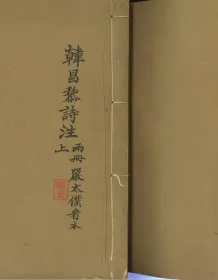 韓昌黎詩注
兩冊 嚴太僕看本
上